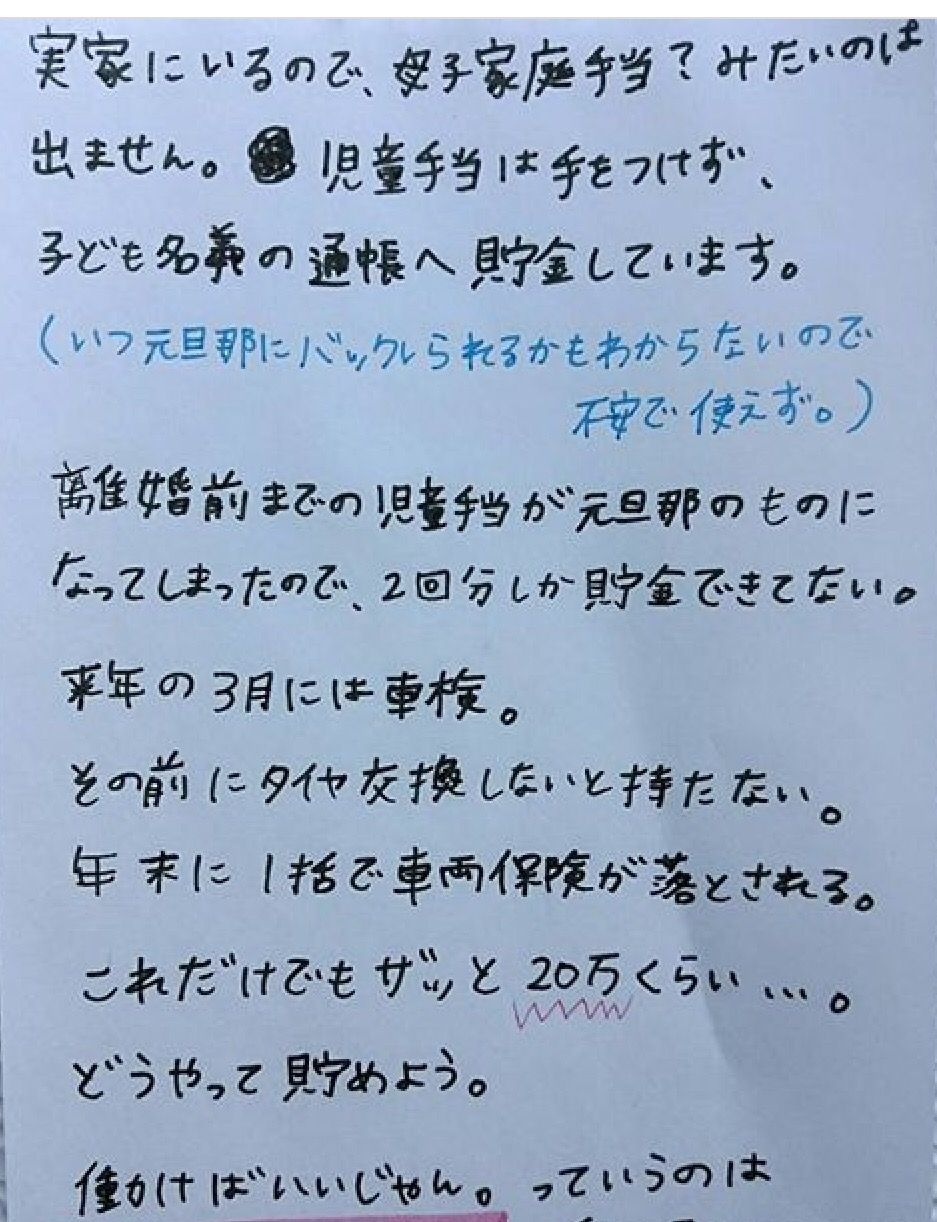 実家にいるので、母子家庭手当？みたいのは
出ません。 児童手当は手をつけず、
子ども名義の通帳へ貯金しています。
（いつ元旦那にバックレられるかもわからないので
不安で使えず。）
離婚前までの児童手当が元旦那のものに
なってしまったので、2回分しか貯金できてない。
来年の3月には車検。
その前にタイヤ交換しないと持たない。
年末に1括で車両保険が落とされる。
これだけでもザッと20万くらい…。
どうやって貯めよう。
働かけばいいじゃん。っていうのは